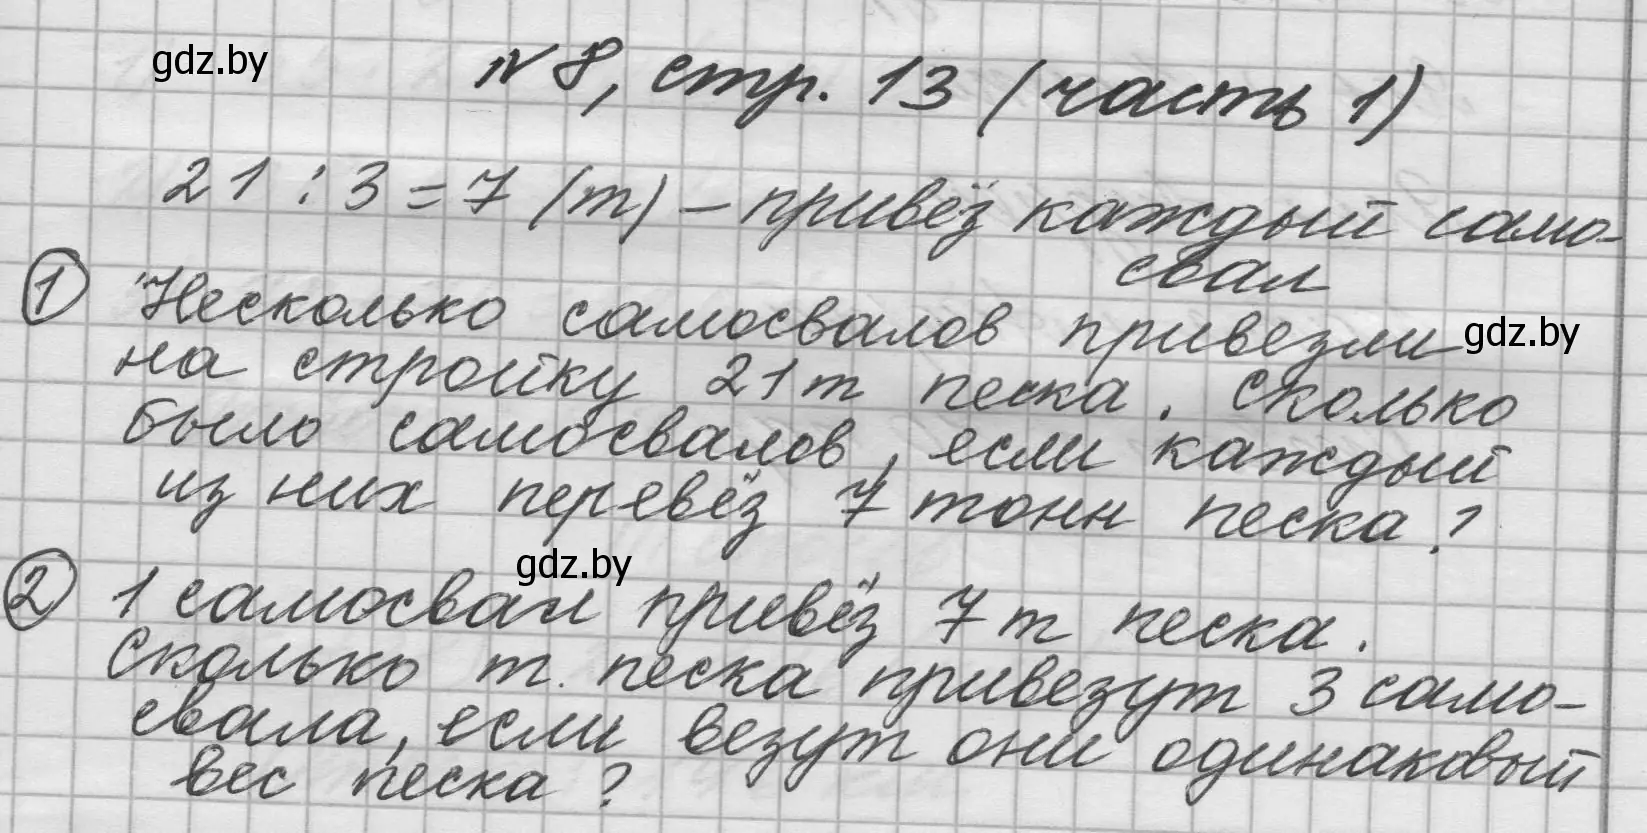 gdz.by
№ 8, стр. 13 (часть 1)
21 : 3 = 7 (т) – привёз каждый само-
свал
1 Несколько самосвалов привезли
gdz.by
на стройку 21 т песка. Сколько
было самосвалов, если каждый
из них перевёз 7 тонн песка?
gdz.by
2 1 самосвал привёз 7 т песка.
Сколько т. песка привезут 3 само-
свала, если везут они одинаковый
вес песка?